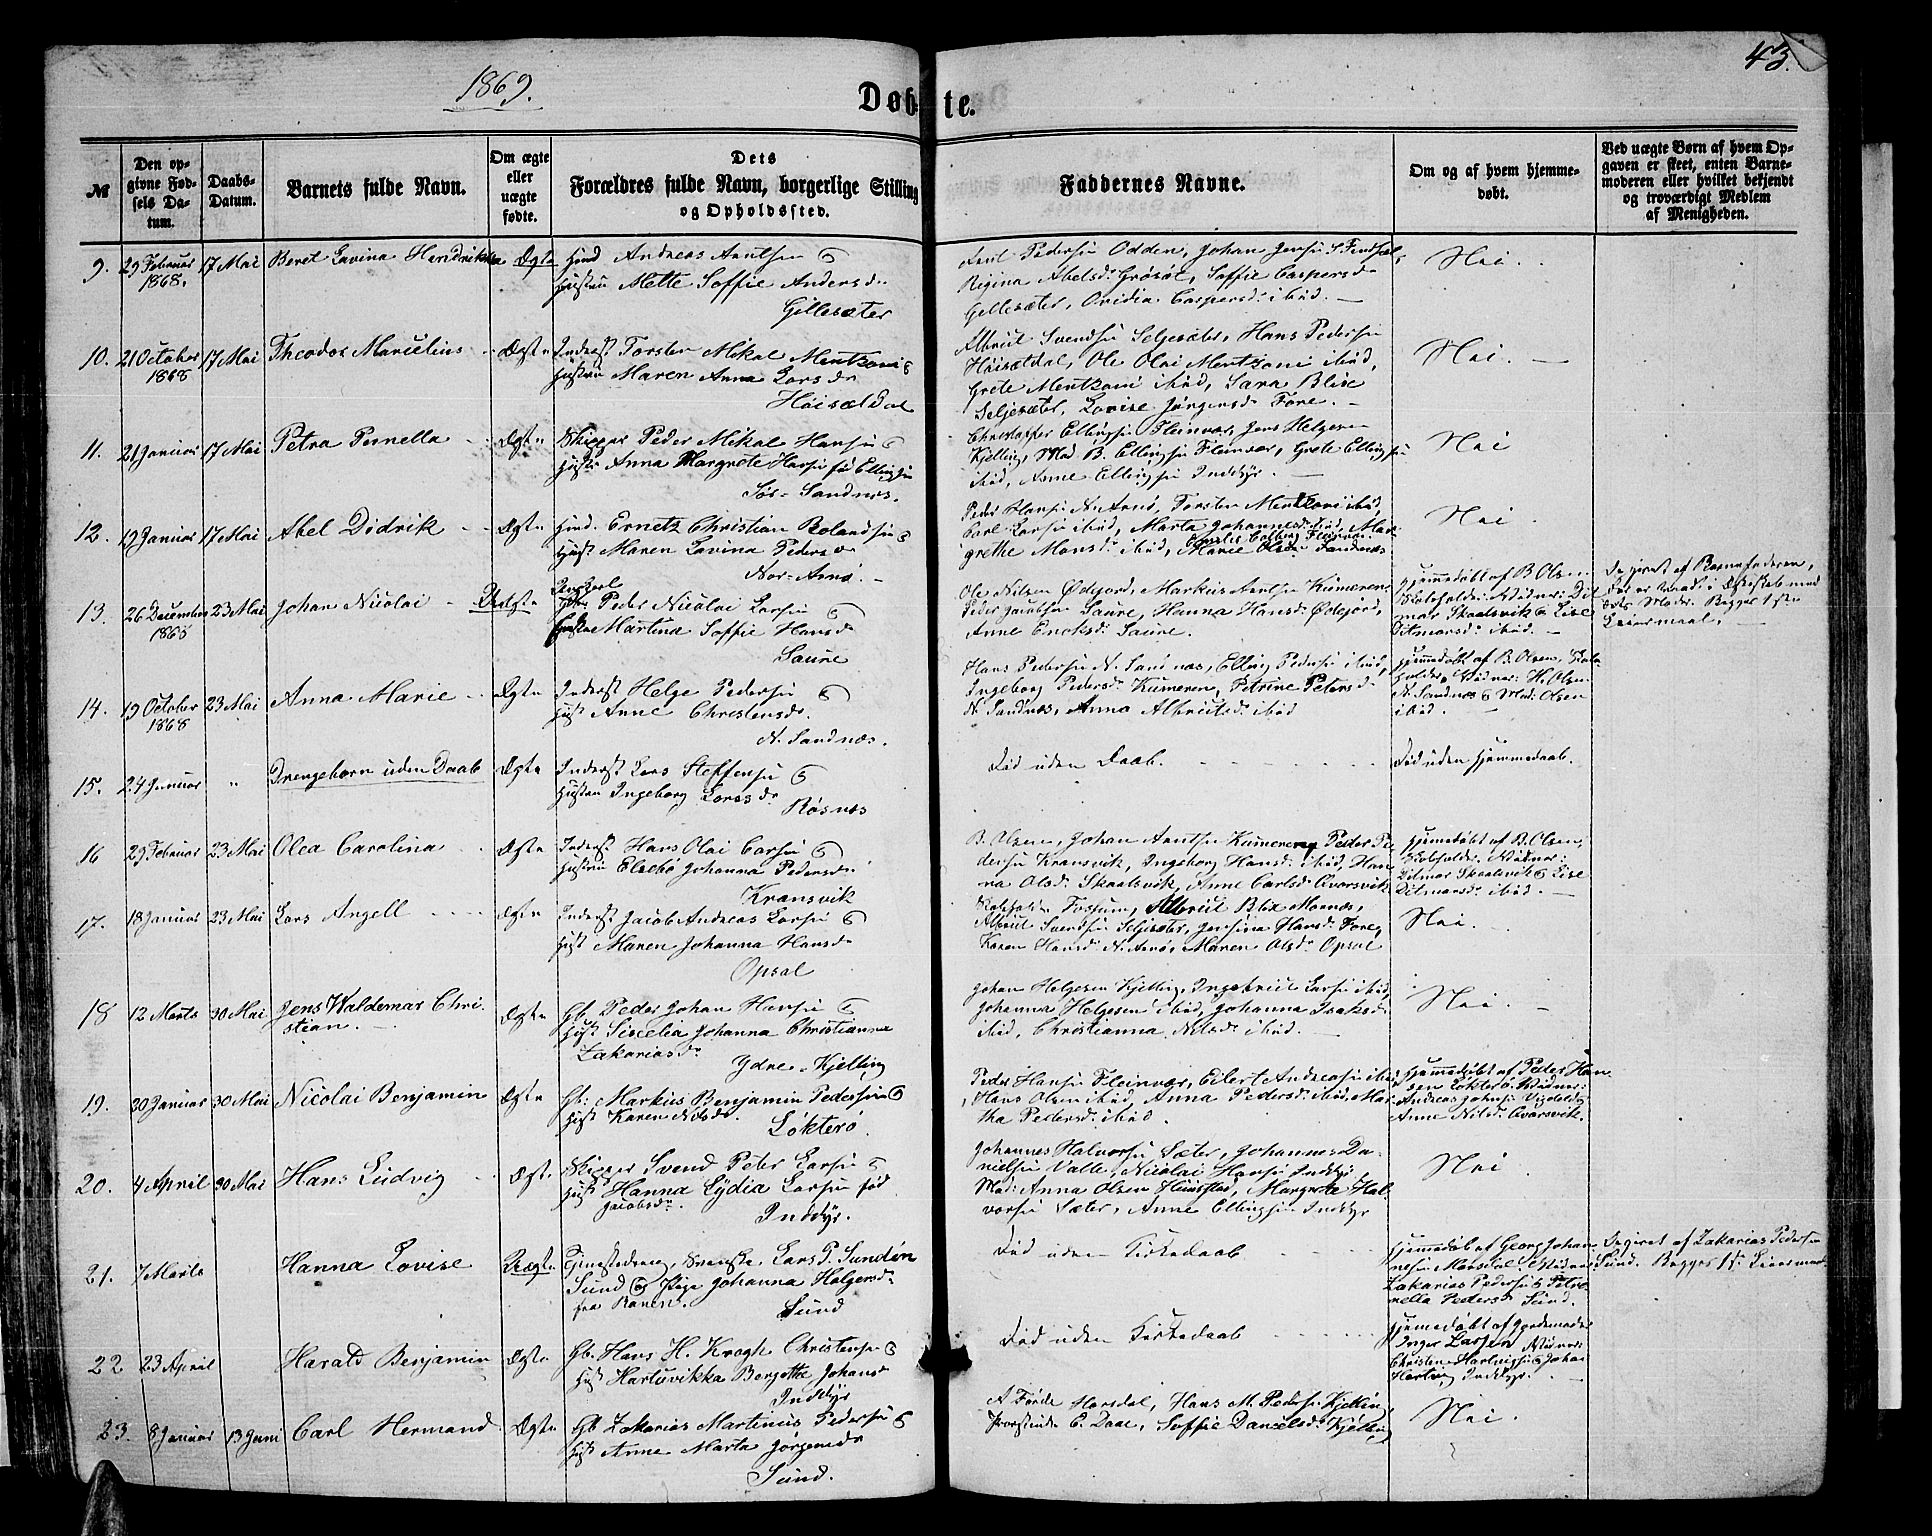 1869.
43.
Døbte.
№
Den opgivne Fødsels Datum.
Daabs-Datum.
Barnets fulde Navn.
Om ægte eller uægte fødte.
Dets Forældres fulde Navn, borgerlige Stilling og Opholdssted.
Faddernes Navne.
Om og af hvem hjemmedøbt.
Ved uægte Børn af hvem Opgaven er skeet, enten Barnemoderen eller hvilket bekjendt og troværdigt Medlem af Menigheden.
9. 29 Februar 1868. 17 Mai Beret Lavina Hendrikka Ægte
Andreas Arntsen &
Hustru Mette Soffie Andersdr
Gillesæter
Arnt Pedersen Odden, Johan Jensen
Regina Abelsdr Grøsøt, Soffie Caspersdr
Gillesæter, Ovidia Caspersdr ibid. —
Nei.
10. 21 October 1868 17 Mai Theodor Marcelius Ægte
Inderst Torsten Mikal Mentzoni &
Hustru Maren Anna Larsdr
Høisætdal
Albrict Svendsen Seljesæter, Hans Pedersen
Høisætdal, Ole Olai Mentzoni ibid,
Grete Mentzoni ibid, Sara Blix
Seljesæter, Lovise Jørgensdr Føre. —
Nei. —
11. 21 Januar 17 Mai Petra Pernella Ægte
Skipper Peder Mikal Hansen &
Hustru Anna Margrete Hansen fød Ellingsen
Sør-Sandnæs.
Christoffer Ellingsen Fleinvær, Jens Helgesen
Kjelling, Mad B. Ellingsen Fleinvær, Grete Ellingsen
ibid, Anne Ellingsen Inddyr. —
Nei
12. 19 Januar 17 Mai Abel Didrik Ægte
Ernetz Christian Rolandsen &
Hust Maren Lavina Pedersdr
Nor-Arnø. —
Peder Hansen N. Arnø, Torsten Mentzoni ibid,
Carl Larsen ibid, Marta Johannesdr ibid, Mar-
grethe Monsdr ibid, Marie Olsen Sandnæs
Nei.
13. 26 December 23 Mai Johan Nicolai Uægte
Peder Nicolai Larsen &
Martina Soffie Hansdr
Saure
Ole Nilsen Ødejord, Markus Arntsen Kumeren
Peder Jacobsen Saure, Hanna Hansdr Ødejord,
Anne Ericksdr Saure.
Hjemmedøbt af B. Olsen
Kirkeholder, Vidner: Dit-
mar Skaalsvik & Lise
Ditmarsdr ibid. —
Begge 1ste
Leiermaal.
14. 19 October 1868 23 Mai Anna Marie Ægte
Inderst Helge Pedersen &
Hust Anne Christensdr
N. Sandnæs.
Hans Pedersen N. Sandnæs, Elling Pedersen ibid,
Ingeborg Pedersdr Kumeren, Petrine Petersdr
N. Sandnæs, Anna Albrictsdr ibid
Hjemmedøbt af B. Olsen,
Vidner: H. Olsen
N. Sandnæs & Mad: Olsen
ibid.
15. 24 Januar " Drengebarn uden Daab Ægte
Inderst Lars Steffensen &
Hustru Ingeborg Larsdr
Røsnæs
Død uden Daab.
Død uden Hjemmedaab.
16 29 Februar 23 Mai Olea Carolina Ægte
Inderst Hans Olai Larsen &
Hustru Elsebe Johanna Pedersdr
Kransvik
B. Olsen, Johan Arntsen Kumeren, Peder Pe-
dersen Kransvik, Ingeborg Hansdr ibid, Han-
na Olsdr Skaalsvik, Anne Carlsdr Qvarsvik
Hjemmedøbt af B. Olsen,
Vidner:
Ditmar Skaalsvik & Lise
Ditmarsdr ibid.
17. 18 Januar 23 Mai Lars Angell Ægte
Inderst Jacob Andreas Larsen &
Hust Maren Johanna Hansdr
Opsal
Fossum, Albrict Blix Mornæs,
Albrict Svendsen Seljesæter, Jensina Hansdr Føre,
Karen Hansdr N. Arnø, Maren Olsdr Opsal
Nei.
18 12 Marts 30 Mai Jens Waldemar Chri-
stian. Ægte
Gb. Peder Johan Hansen &
Hust Siselia Johanna Christianna
Zakariasdr
Ydre-Kjelling
Johan Helgesen Kjelling, Ingebrict Larsen ibid,
Johanna Helgesen ibid, Johanna Isaksdr
ibid, Christianna Nilsdr ibid.
Nei. —
19. 30 Januar 30 Mai Nicolai Benjamin Ægte
Gb. Markus Benjamin Pedersen &
Hust Karen Nilsdr.
Løkterø.
Peder Hansen Fleinvær, Eilert Andreasen ibid
, Hans Olsen ibid, Anna Pedersdr ibid, Mar-
tha Pedersdr ibid.
Hjemmedøbt af Peder Han-
sen Løkterø. Vidner:
Anne Nilsdr Qvarsvik.
20. 4 April 30 Mai Hans Ludvig Ægte
Skipper Svend Peter Larsen &
Hust Hanna Lydia Larsen fød
Jacobsdr
Inddyr.
Johannes Halvorsen Sæter, Johannes Da-
nielsen Valle, Nicolai Hansen Inddyr,
Mad: Anna Olsen, Margrete Hal-
vorsen Sæter, Anne Ellingsen Inddyr
Nei.
21. 7 Marts Hanna Lovise Uægte
Tjenestedreng, Svenske, Lars P. Sundèn
Sund & Pige Johanna Holgersdr
fra Ranen.
Sund
Død uden Kirkedaab
Hjemmedøb af Georg Johan-
nesen Mårsdal. Vidner
Zakarias Pedersen & Petro-
nella Pedersdr Sund.
Opgivet af Zakarias Pedersen
Sund. Begges 1ste Leiermaal.
22. 23 April Harald Benjamin Ægte
Gb. Hans H. Krogh Christensen &
Hust Hartuvikka Bergitte Johansdr
Inddyr
Død uden Kirkedaab
Hjemmedøbt af Jordemoder
Inger Larsen Vidner:
Christen Hartvigsen & Johan
Hartvig Inddyr.
23. 8 Januar 13 Juni Carl Hermand Ægte
Gb Zakarias Martinus Pedersen &
Hust Anne Marta Jørgensdr
Sund.
A. Friide Horsdal, Hans M. Pedersen Kjelling,
Provstinde C. Daae, Soffie Danielsdr Kjelling
Nei.